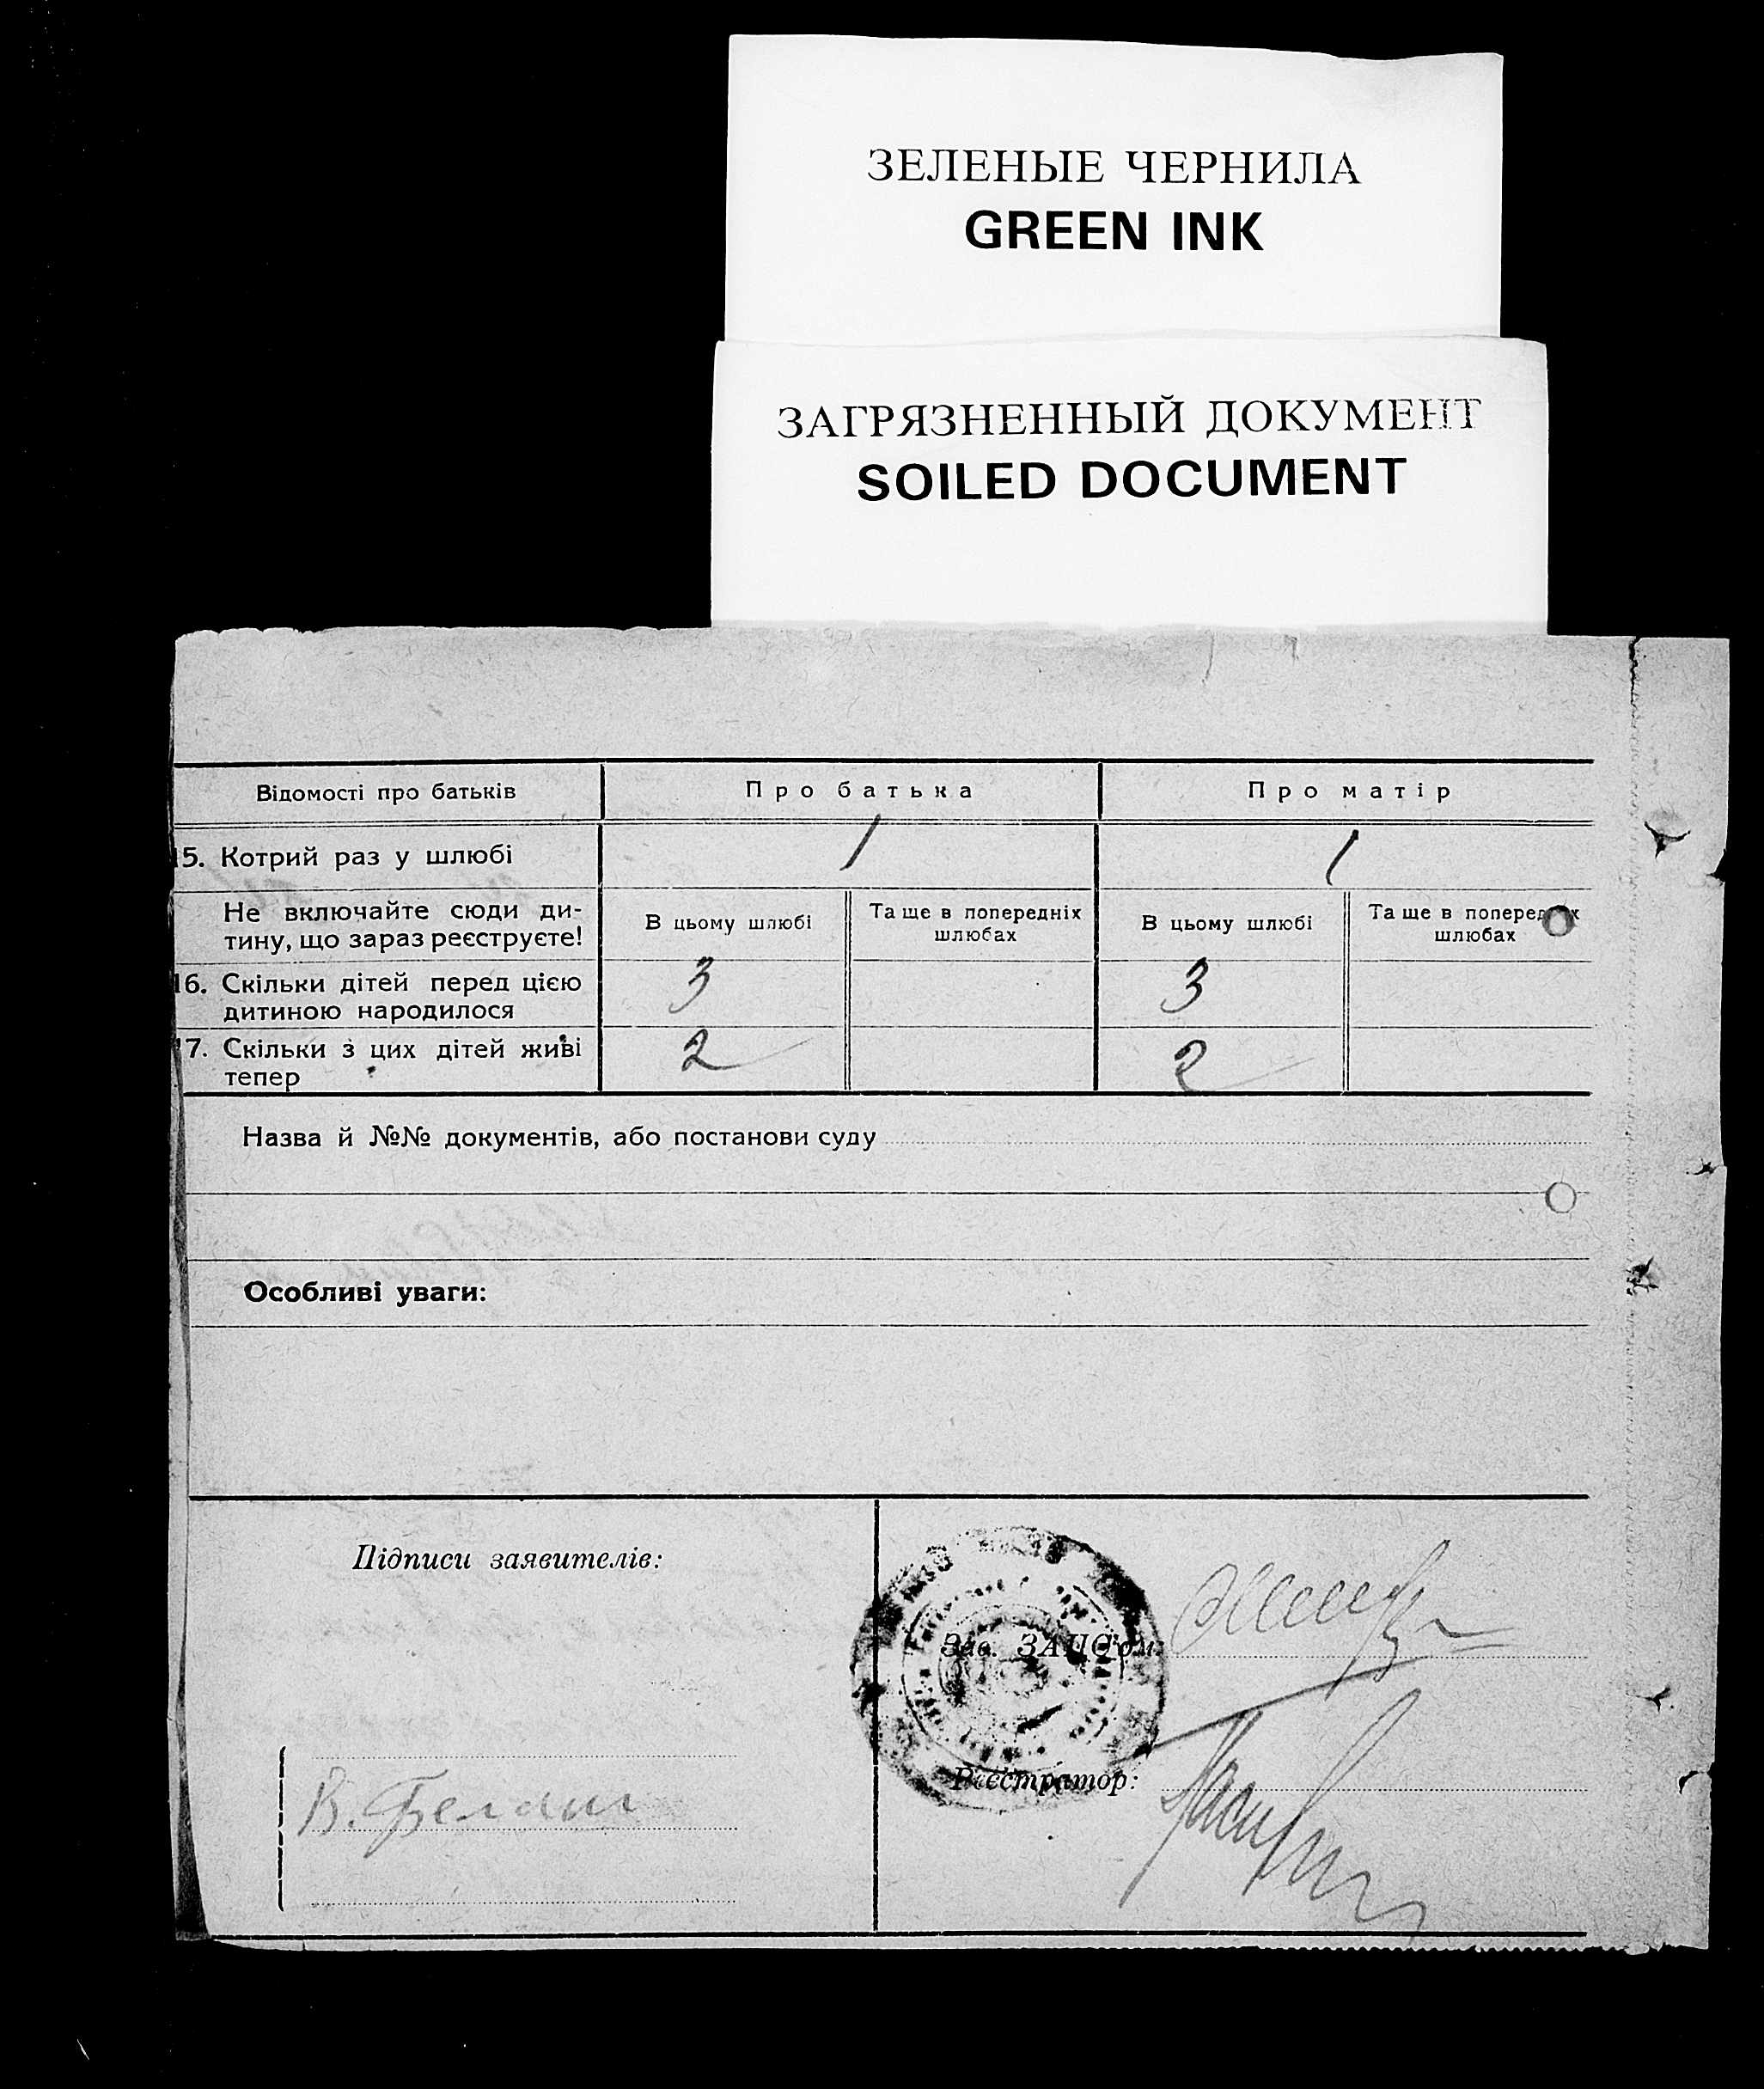 ЗЕЛЕНЫЕ ЧЕРНИЛА
GREEN INK
ЗАГРЯЗНЕННЫЙ ДОКУМЕНТ
SOILED DOCUMENT
Відомості про батьків Про батька Про матір
15. Котрий раз у шлюбі 1 1
Не включайте сюди ди-
тину, що зараз реєструєте!
В цьому шлюбі
Та ще в попередніх
шлюбах
В цьому шлюбі
Та ще в попередніх
шлюбах
16. Скільки дітей перед цією
дитиною народилося
3 3
17. Скільки з цих дітей живі
тепер
2 2
Назва й №№ документів, або постанови суду
Особливі уваги:
Підписи заявителів:
Зав. ЗАЦС'ом:
Реєстратор:
В. Белаш